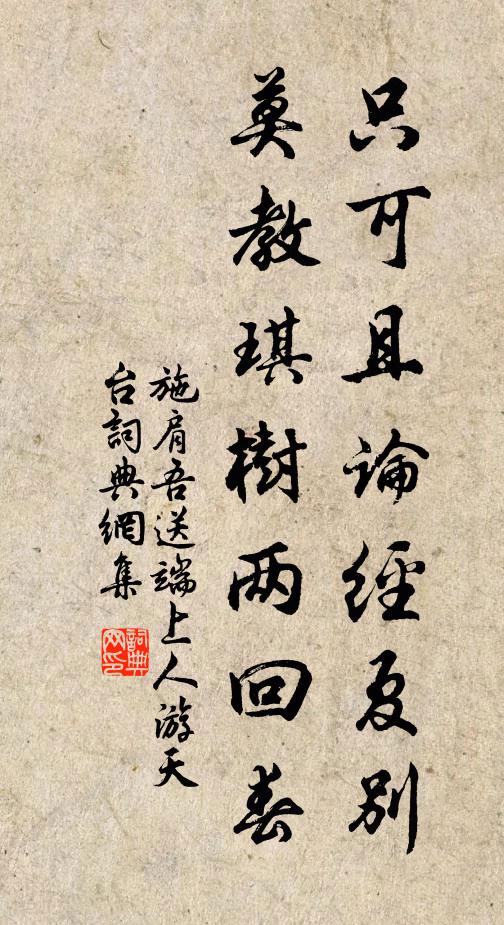 只可且论经夏别
莫教琪樹两回春
施肩吾送端上人游天
台詞典網集
詞典网印